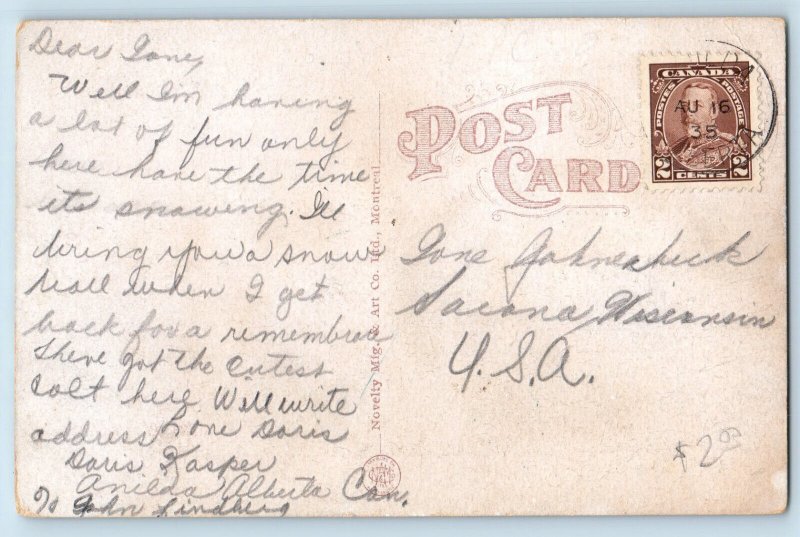 Dear Ione,
Well Im having
a lot of fun only
here have the time
its snowing. Ill
bring you a snow
ball when I get
back for a remembrac
Theve got the cutest
colt here Well write
address Love Doris
Doris Kasper
Anilda Alberta Can.
% John Lindberg
Novelty Mfg. & Art Co. Ltd., Montreal
POST
CARD
CANADA
POSTES POSTAGE
2 CENTS 2
AU 16
35
Ione
Wisconsin
U.S.A.
$2.00